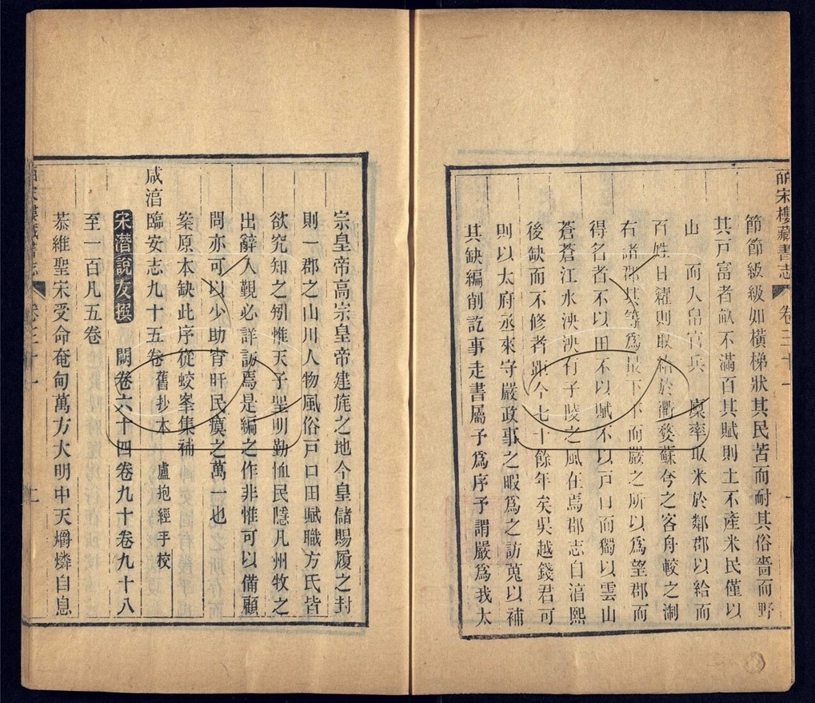 皕宋樓藏書志 卷三十一
節節級級如橫梯狀其民苦而耐其俗嗇而野
其戸富者畝不滿百其賦則土不產米民僅以
山 而入帛官兵 廩率取米於鄰郡以給而
百姓日糴則取給於衢婺蘇秀之客舟較之浙
右諸郡其等爲最下下而嚴之所以爲望郡而
得名者不以田不以賦不以戸口而獨以雲山
蒼蒼江水泱泱有子陵之風在焉郡志自淳熙
後缺而不修者距今七十餘年矣吳越錢君可
則以太府丞來守嚴政事之暇爲之訪蒐以補
其缺編削訖事走書屬予爲序予謂嚴爲我太
宗皇帝高宗皇帝建旄之地今皇儲賜履之封
則一郡之山川人物風俗戸口田賦職方氏皆
欲究知之矧惟天子聖明勤恤民隱凡州牧之
出辭入覲必詳訪焉是編之作非惟可以備顧
問亦可以少助宵旰民瘼之萬一也
案原本缺此序從蛟峯集補
咸淳臨安志九十五卷 舊抄本 盧抱經手校
宋潛說友撰 闕卷六十四卷九十卷九十八
至一百凡五卷
恭維聖宋受命奄甸萬方大明中天爝燐自息
皕宋樓藏書志 卷三十一